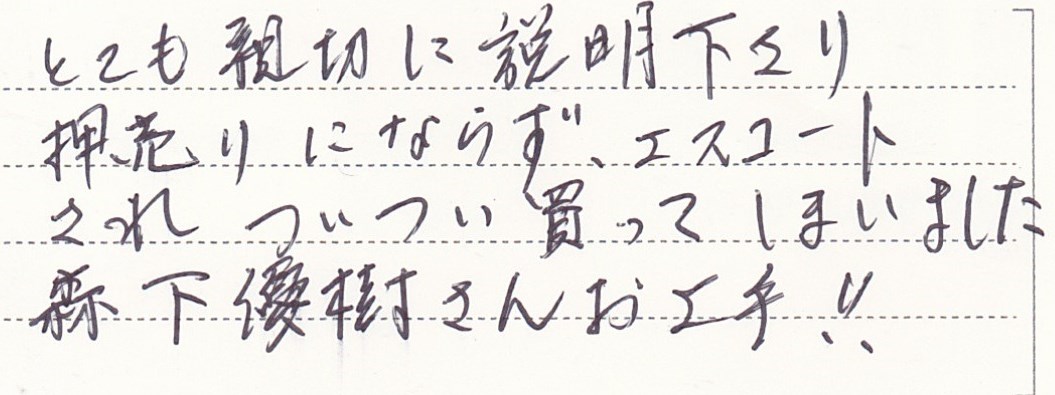 とても親切に説明下さり
押売りにならず、エスコート
されついつい買ってしまいました
森下優樹さんお上手!!